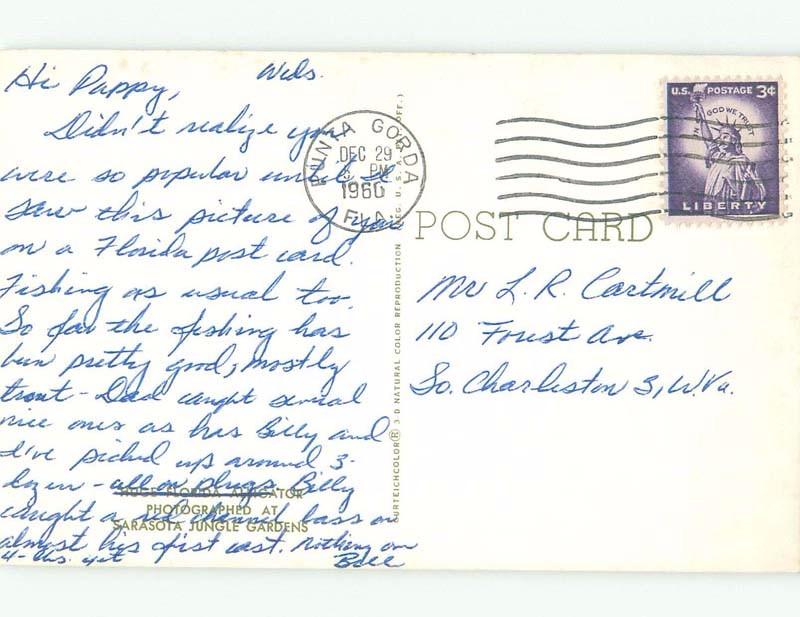 Weds.
Hi Pappy,
Didn't realize you
were so popular until I
saw this picture of you
on a Florida post card.
Fishing as usual too.
So far the fishing has
been pretty good, mostly
trout - Dad caught several
nice ones as has Billy and
I've picked up around 3-
dozen - all on plugs. Billy
caught a red channel bass on
almost his first cast. Nothing over
4-lbs. yet
Bill
HUGE FLORIDA ALLIGATOR
PHOTOGRAPHED AT
SARASOTA JUNGLE GARDENS
CURTEICHCOLOR® 3-D NATURAL COLOR REPRODUCTION (REG. U.S.A. OFF.)
PUNTA GORDA
DEC 29
PM
1960
FLA.
U.S. POSTAGE 3¢
IN GOD WE TRUST
LIBERTY
POST CARD
Mr L. R. Cartmill
110 Forest Ave.
So. Charleston 3, W.Va.